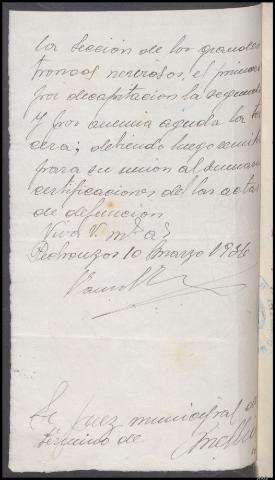 la sección de los grandes
troncos nerviosos, el primero
por decapitación la segunda
y por anemia aguda la ter
cera; debiendo luego remitir
para su unión al sumario
certificaciones de las actas
de defunción
Viva V. ms as
Pedronzos 10 Marzo 1936
Sr Juez municipal del
término de